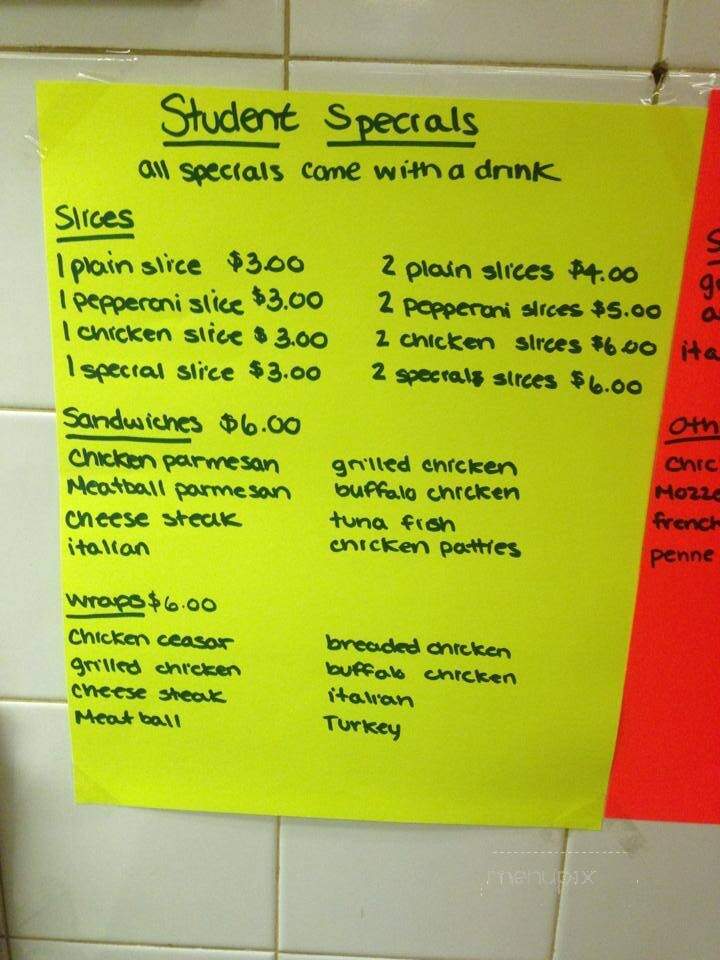 Student Specials
all specials come with a drink
Slices
1 plain slice $3.00
1 pepperoni slice $3.00
1 chicken slice $3.00
1 special slice $3.00
2 plain slices $4.00
2 pepperoni slices $5.00
2 chicken slices $6.00
2 specials slices $6.00
Sandwiches $6.00
Chicken parmesan
Meatball parmesan
cheese steak
italian
grilled chicken
buffalo chicken
tuna fish
chicken patties
Wraps $6.00
Chicken ceasar
grilled chicken
cheese steak
Meatball
breaded chicken
buffalo chicken
italian
Turkey
S
g
a
ita
Oth
Chic
Mozze
french
penne
menupix